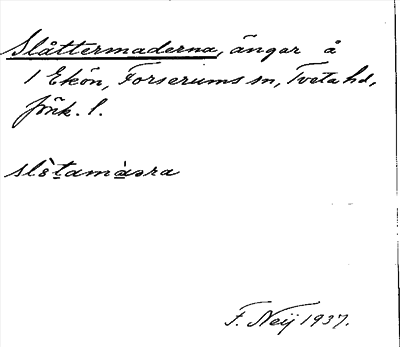 Slåttermaderna, ängar å
1 Ekön, Forserums sn, Tveta hd,
Jönk. l.
slòtamàəra
F. Neij 1937.